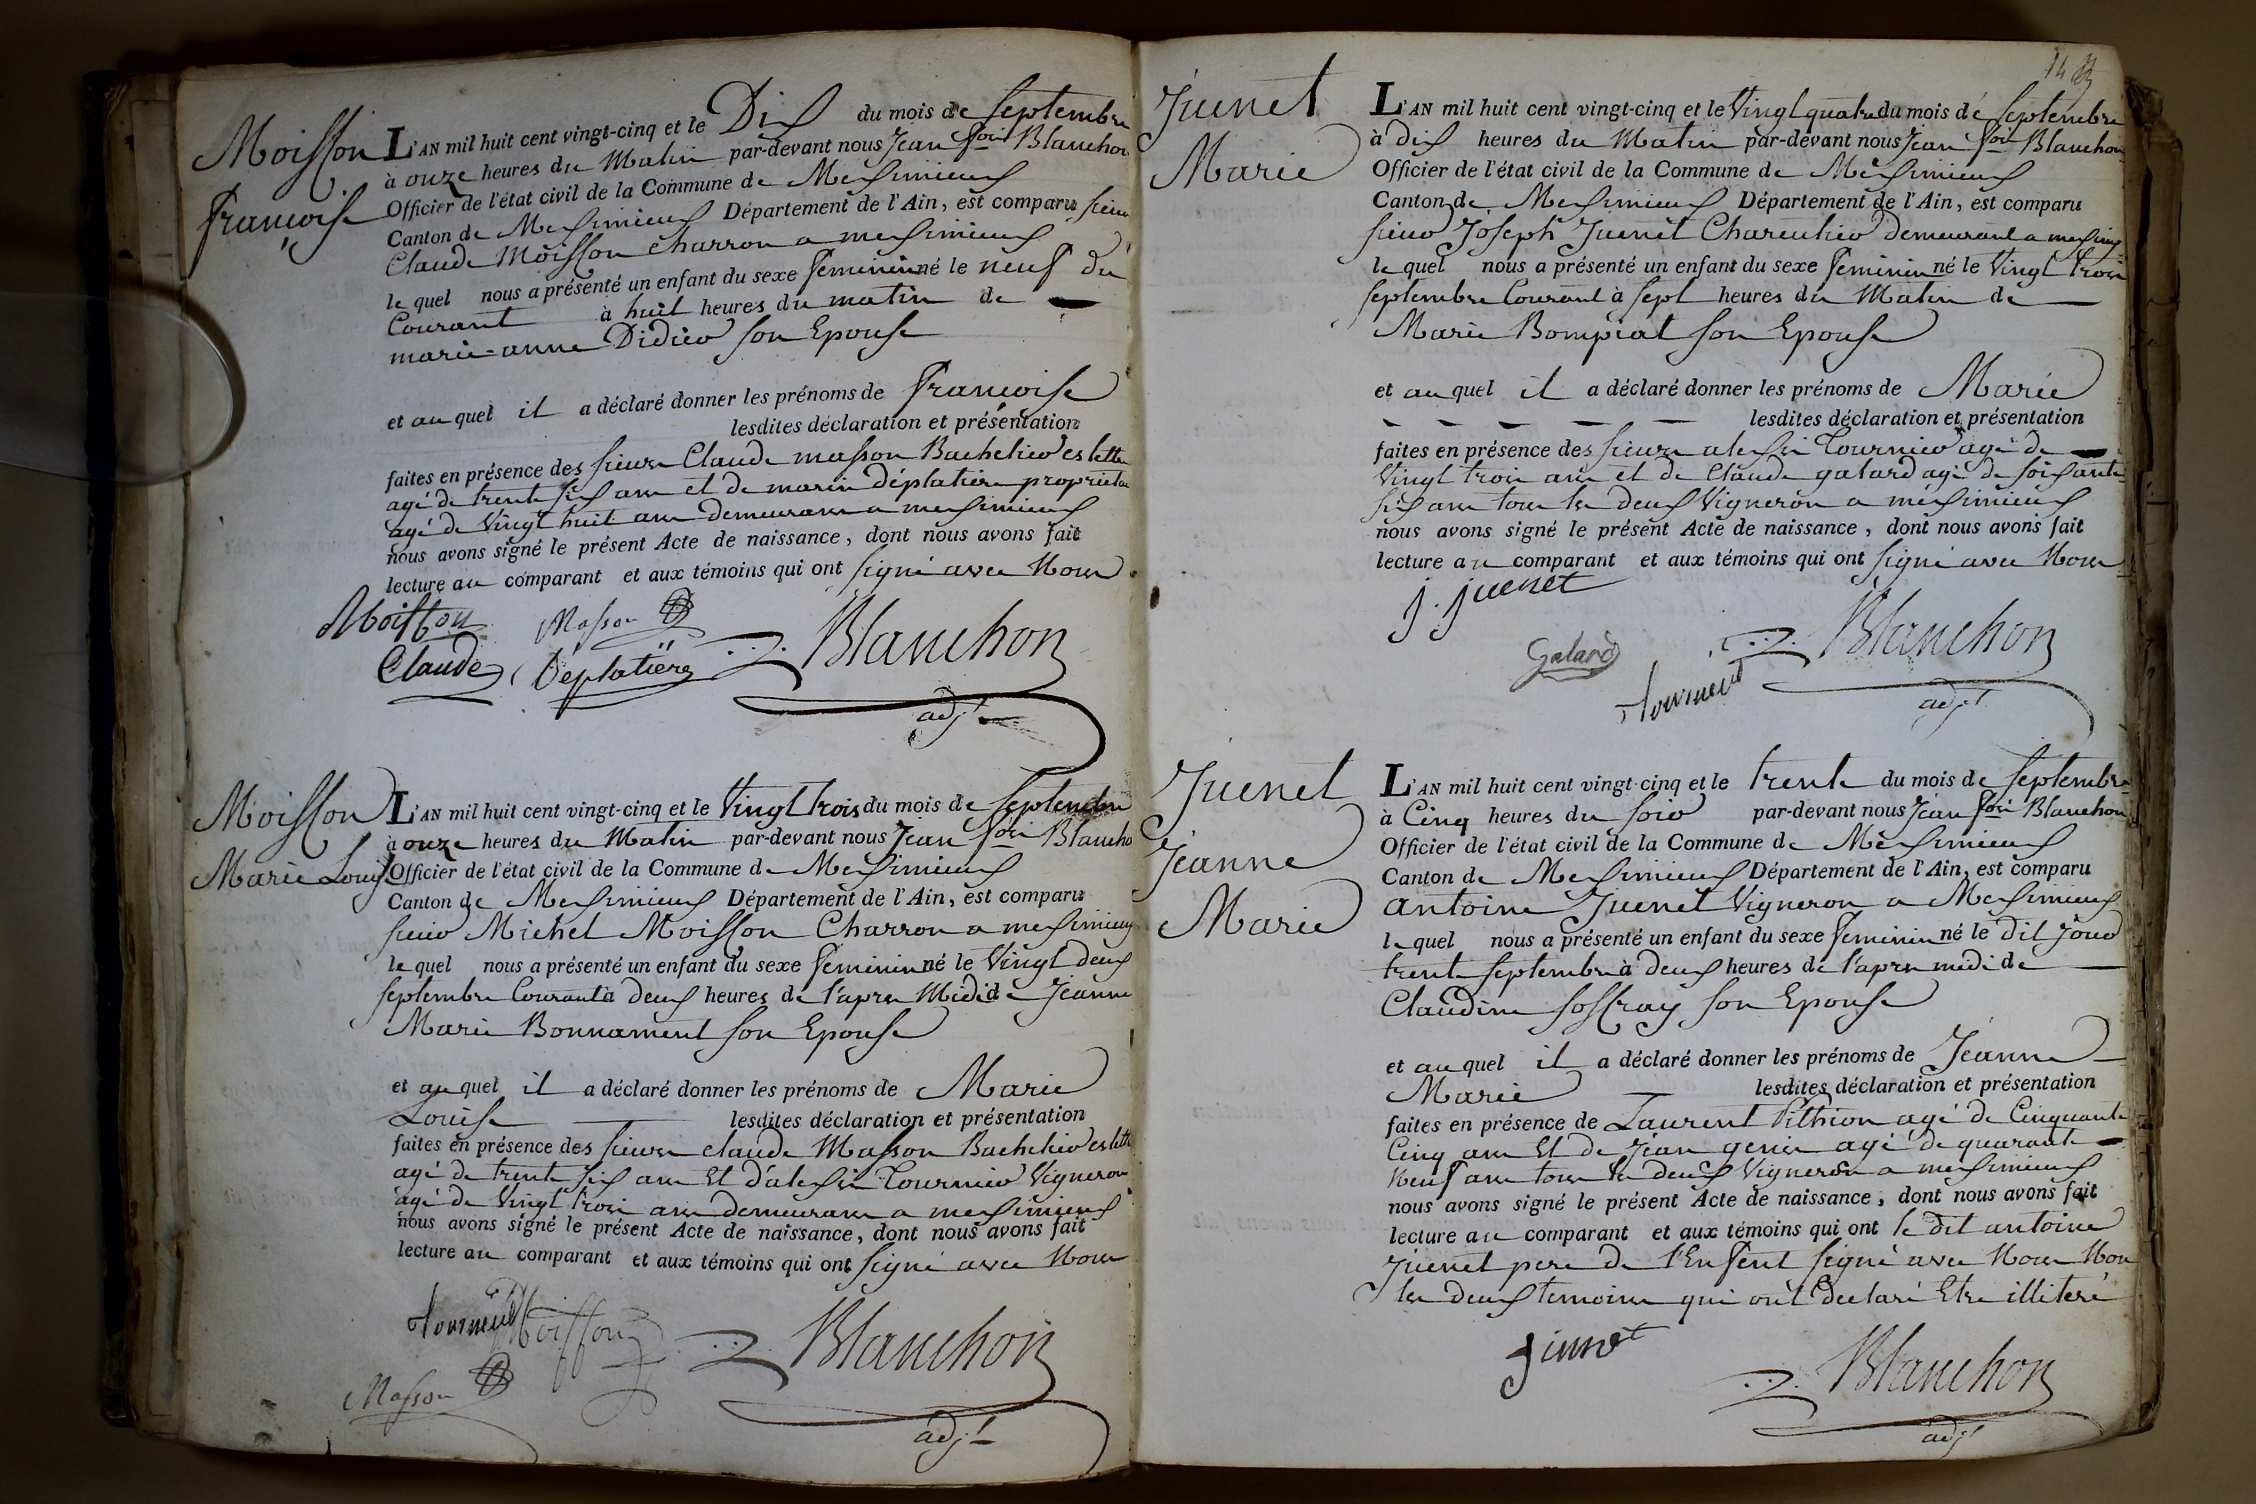 Moisson
françoise
L'AN mil huit cent vingt-cinq et le Dix du mois de Septembre
à onze heures du Matin par-devant nous Jean foi Blanchon
Officier de l'état civil de la Commune de Meximieux
Canton de Meximieux Département de l'Ain, est comparu Sieur
Claude Moisson charron a meximieux
le quel nous a présenté un enfant du sexe feminin né le neuf du
Courant à huit heures du matin de
marie-anne Didier son Epouse
et au quel il a déclaré donner les prénoms de françoise
lesdites déclaration et présentation
faites en présence des sieurs Claude masson Bachelier es lettre
agé de trente six ans et de marin déplatière propriétaire
agé de Vingt huit ans demeurans a meximieux
nous avons signé le présent Acte de naissance, dont nous avons fait
lecture au comparant et aux témoins qui ont signé avec Nous
Moisson Masson
Claude Deplatière Blanchon
adjt
Moisson
Marie Louise
L'AN mil huit cent vingt-cinq et le Vingt trois du mois de Septembre
à onze heures du Matin par-devant nous Jean foi Blancho
Officier de l'état civil de la Commune de Meximieux
Canton de Meximieux Département de l'Ain, est comparu
sieur Michel Moisson Charron a meximieux
le quel nous a présenté un enfant du sexe feminin né le Vingt deux
septembre Courant à deux heures de l'apres Midi de Jeanne
Marie Bonnament son Epouse
et au quel il a déclaré donner les prénoms de Marie
Louise lesdites déclaration et présentation
faites en présence des sieurs claude Masson Bachelier es lettre
agé de trente six ans Et d'alexis Tournier Vigneron
agé de Vingt trois ans demeurans a meximieux
nous avons signé le présent Acte de naissance, dont nous avons fait
lecture au comparant et aux témoins qui ont signé avec Nous
tournier Moisson Blanchon
Masson
adjt
14
Juenet
Marie
L'AN mil huit cent vingt-cinq et le Vingt quatre du mois de Septembre
à dix heures du Matin par-devant nous Jean foi Blanchon
Officier de l'état civil de la Commune de Meximieux
Canton de Meximieux Département de l'Ain, est comparu
sieur Joseph Juenet Charcutier demeurant a meximx
le quel nous a présenté un enfant du sexe feminin né le Vingt trois
septembre Courant à sept heures du Matin de
Marie Bompiat son Epouse
et au quel il a déclaré donner les prénoms de Marie
lesdites déclaration et présentation
faites en présence des sieurs alexis Tournier agé de
Vingt trois ans et de Claude galard agé de soixante
six ans tous les deux Vigneron a meximieux
nous avons signé le présent Acte de naissance, dont nous avons fait
lecture au comparant et aux témoins qui ont signé avec Nous
j. juenet
Galard Blanchon
tournier
adjt
Juenet
Jeanne
Marie
L'AN mil huit cent vingt-cinq et le trente du mois de Septembre
à Cinq heures du soir par-devant nous Jean foi Blanchon
Officier de l'état civil de la Commune de Meximieux
Canton de Meximieux Département de l'Ain, est comparu
antoine Juenet Vigneron a Meximieux
le quel nous a présenté un enfant du sexe feminin né le dit Jour
trente septembre à deux heures de l'apres midi de
Claudine soffray son Epouse
et au quel il a déclaré donner les prénoms de Jeanne
Marie lesdites déclaration et présentation
faites en présence de Laurent Pithion agé de Cinquante
Cinq ans Et de Jean genin agé de quarante
Neuf ans tous les deux Vigneron a meximieux
nous avons signé le présent Acte de naissance, dont nous avons fait
lecture au comparant et aux témoins qui ont le dit antoine
Juenet pere de l'Enfent signé avec Nous Non
les deux temoins qui ont declaré Etre illiteré
juenet
Blanchon
adjt